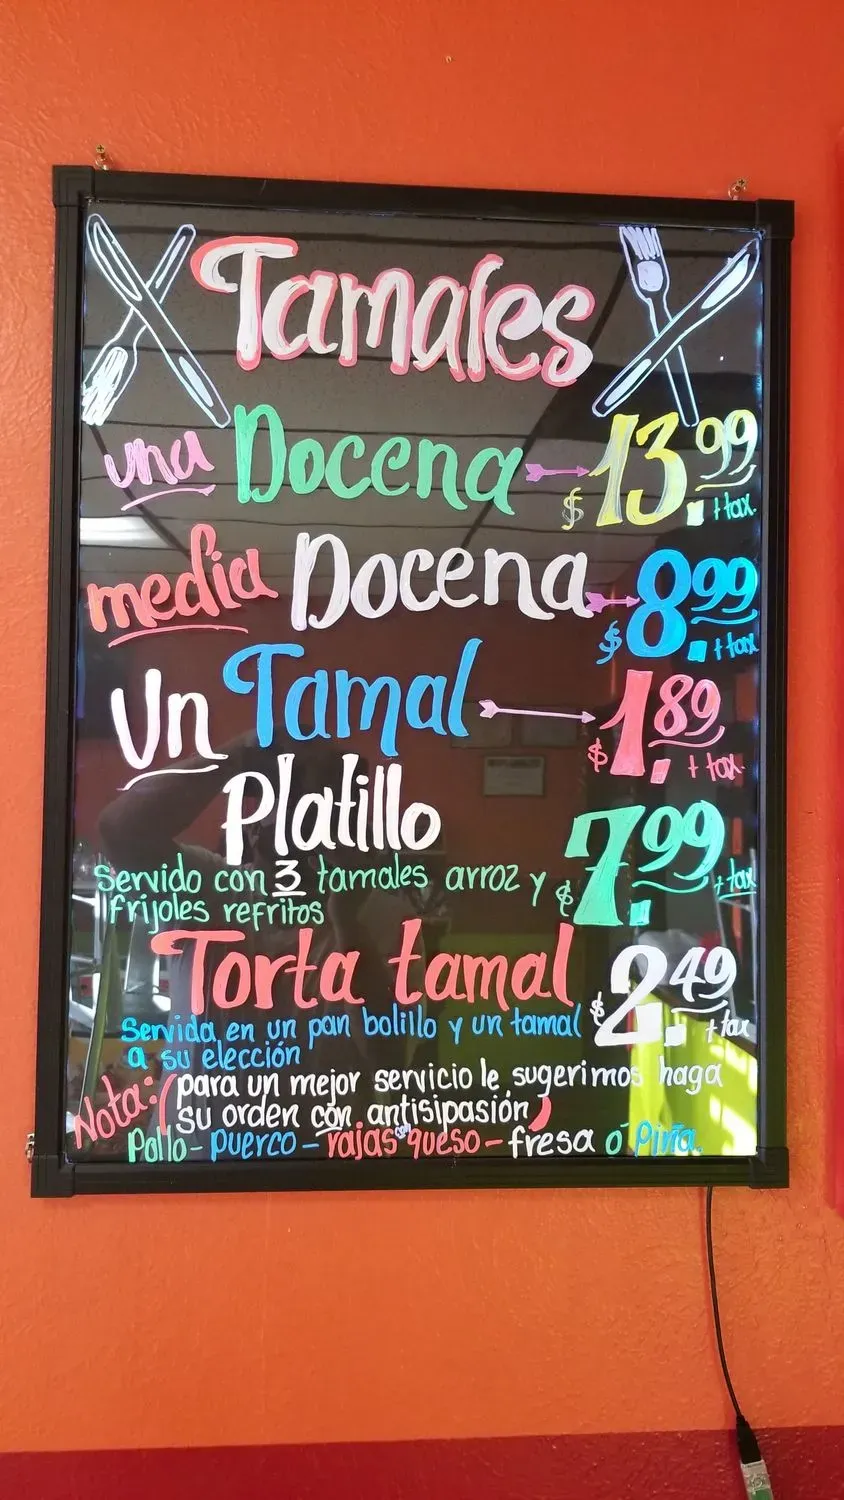 Tamales
una Docena $13.99 + tax.
media Docena $8.99 + tax
Un Tamal $1.89 + tax.
Platillo
Servido con 3 tamales arroz y
frijoles refritos
$7.99 + tax
Torta tamal
$2.49 + tax
Servida en un pan bolillo y un tamal
a su elección
Nota: (para un mejor servicio le sugerimos haga
su orden con antisipasión)
Pollo - puerco - rajas con queso - fresa ó Piña.